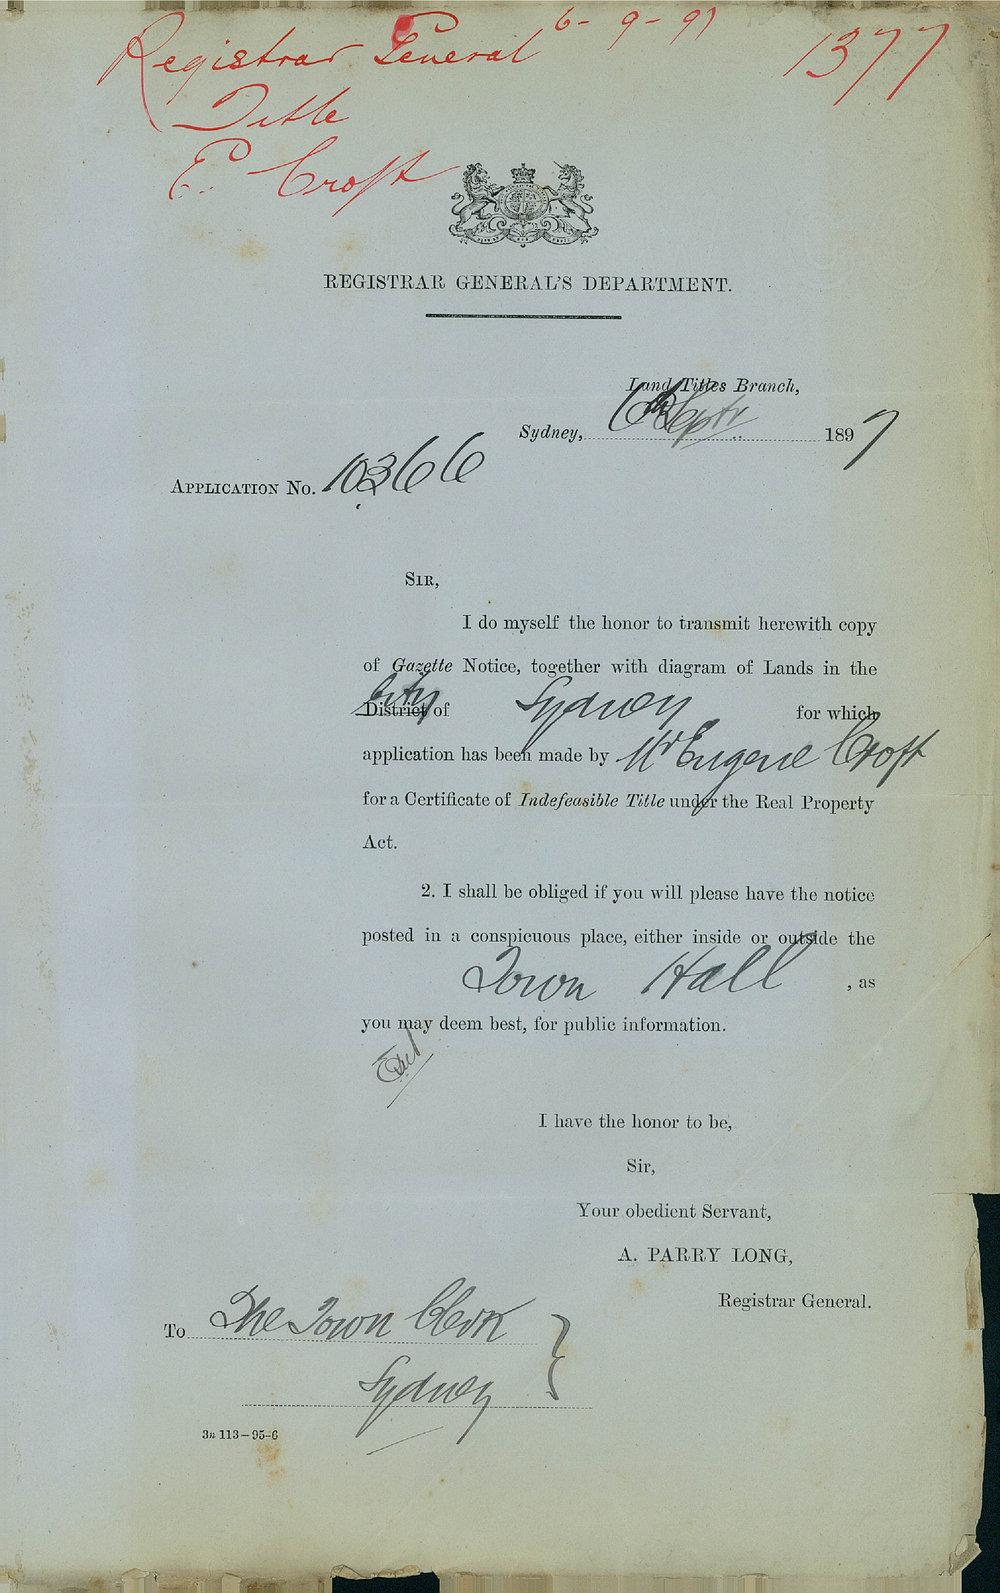 Registrar General 6-9-97 1377
Title
E. Croft
REGISTRAR GENERAL'S DEPARTMENT.
Land Titles Branch,
Sydney, 6th Septr 1897
APPLICATION No. 10366
SIR,
I do myself the honor to transmit herewith copy
of Gazette Notice, together with diagram of Lands in the
City
District of Sydney for which
application has been made by Mr Eugene Croft
for a Certificate of Indefeasible Title under the Real Property
Act.
2. I shall be obliged if you will please have the notice
posted in a conspicuous place, either inside or outside the
Town Hall, as
you may deem best, for public information.
I have the honor to be,
Sir,
Your obedient Servant,
A. PARRY LONG,
Registrar General.
To The Town Clerk
Sydney
3n 113-95-6